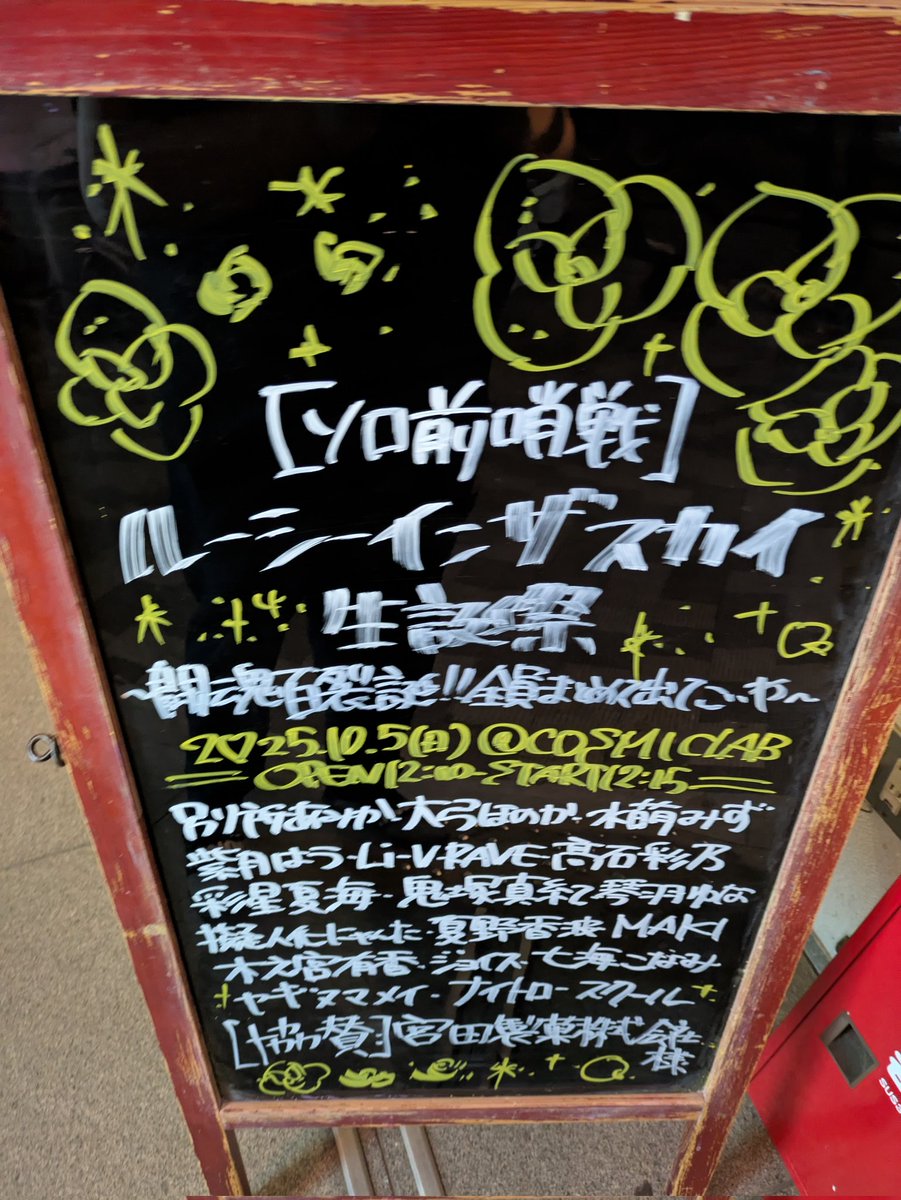 [ソロ前哨戦]
ルーシーインザスカイ
生誕祭
～闘魂百裂誕!!全員まとめて出てこいや～
2♡25.10.5(日)@COSMICLAB
OPEN12:00-START12:15
大弓ほのか・水萌みず
紫月はう・Li-V-RAVE・高石彩乃
彩星夏海・鬼塚真紀・琴羽ゆな
擬人化にゃった・夏野香波・MAKI
木之宮有香・ジョイズ・七海こなみ
ヤギヌマメイ・ナイトロースクール
[協賛]宮田製菓株式会社様